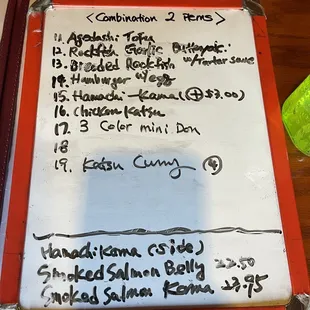 < Combination 2 Items >
11. Agedashi Tofu
12. Rockfish Garlic
13. Breaded Rockfish w/Tartar sauce
14. Hamburger w/egg
15. Hamachi-Kama (+$3.00)
16. Chicken Katsu
17. 3 Color mini Don
18
19. Katsu Curry (4)
Hamachi Kama (side)
Smoked Salmon Belly 22.50
Smoked Salmon Kama